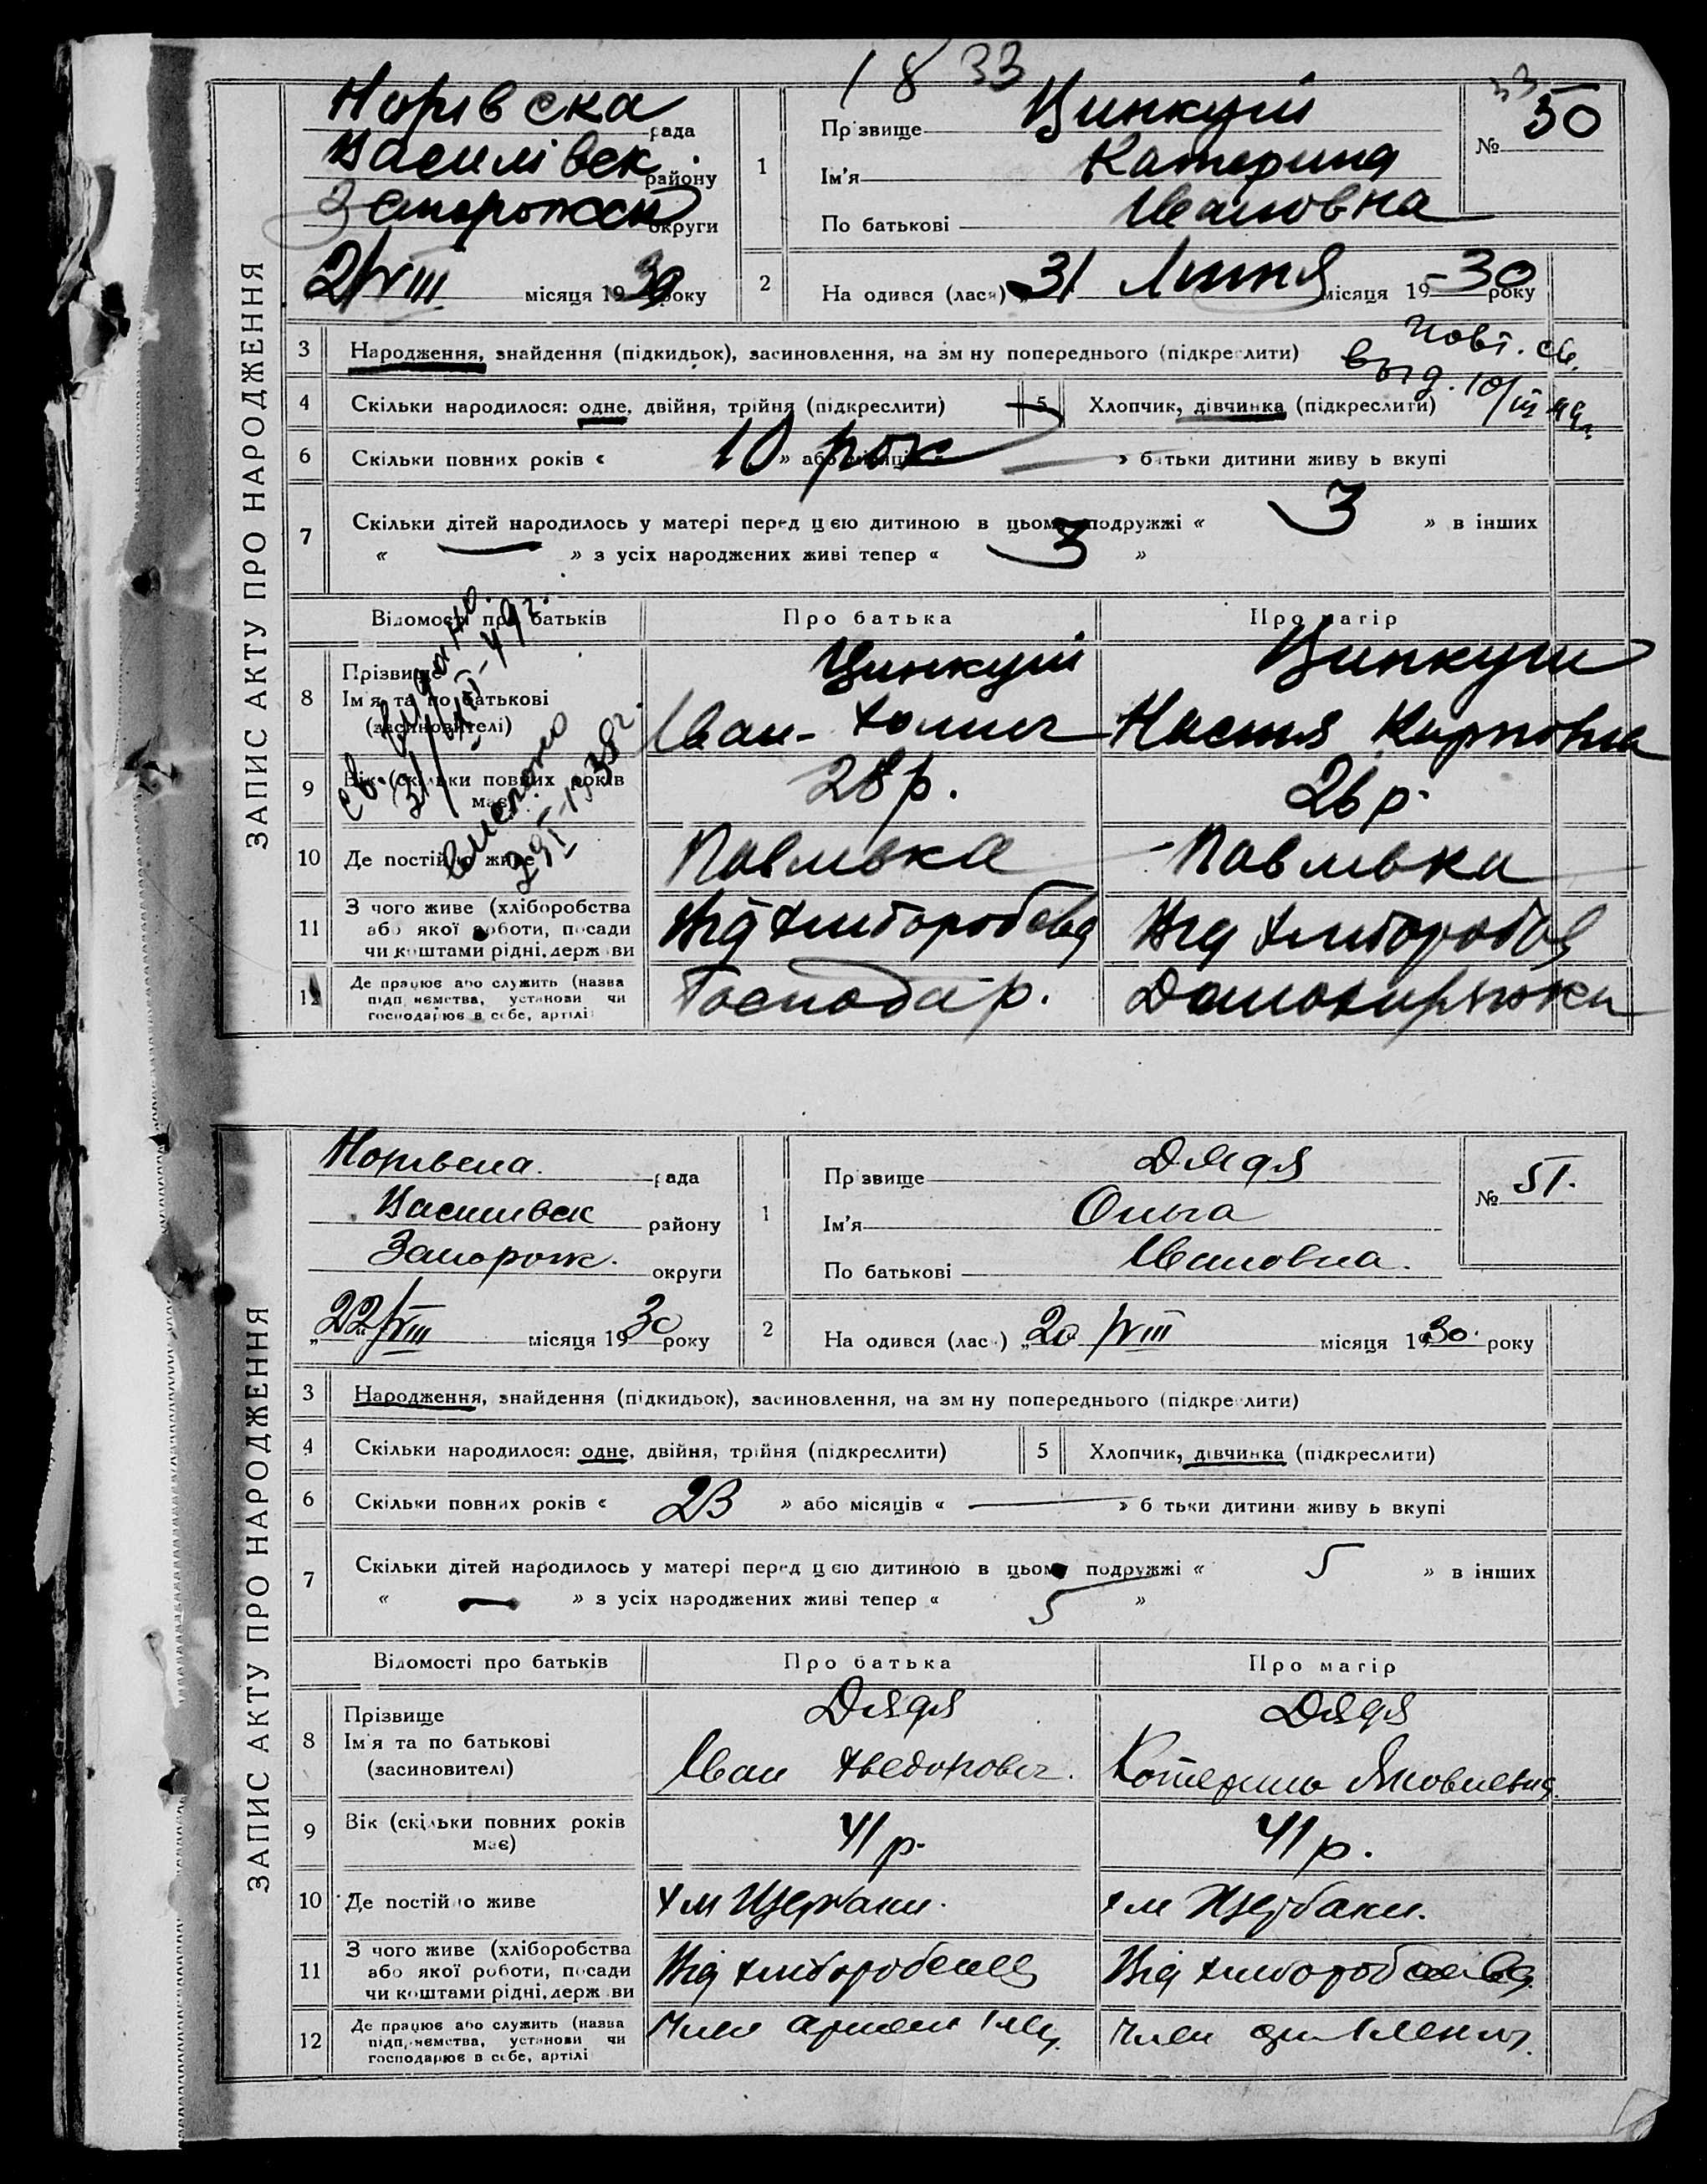 1833
33
ЗАПИС АКТУ ПРО НАРОДЖЕННЯ
рада
Василівск району
Запорожск округи
2/VIII місяця 1930 року
1
Прізвище Цинкуш
Ім'я Катерина
По батькові Ивановна
№ 50
2
На одився (лася) 31 Липня місяця 19 30 року
3 Народження, знайдення (підкидьок), засиновлення, на зм ну попереднього (підкреслити)
Повт. св.
выд. 10/III 49 г.
4 Скільки народилося: одне, двійня, трійня (підкреслити) 5 Хлопчик, дівчинка (підкреслити)
6 Скільки повних років « 10 рок » або місяців « — » батьки дитини живу ь вкупі
7 Скільки дітей народилось у матері перед цією дитиною в цьому подружжі « 3 » в інших
« — » з усіх народжених живі тепер « 3 »
Відомості про батьків Про батька Про матір
8 Прізвище
Ім'я та по батькові
(засиновителі)
Цинкуш
Іван
Цинкуш
Настя Карповна
св. выдано
9 Вік (скільки повних років має) 28 р. 26 р.
10 Де постійно живе Павлівка Павлівка
11 З чого живе (хліборобства
або якої роботи, посади
чи коштами рідні, держ ви
Від хліборобства Від хліборобства
12 Де працює або служить (назва
підп, ємства, установи чи
господарює в себе, артілі
Господар.
ЗАПИС АКТУ ПРО НАРОДЖЕННЯ
рада
Василівск району
Запорож. округи
„22/VIII місяця 1930 року
1
Прізвище Дядя
Ім'я Ольга
По батькові Ивановна.
№ 51.
2
На одився (лас ) „20/VIII місяця 1930. року
3 Народження, знайдення (підкидьок), засиновлення, на зм ну попереднього (підкре лити)
4 Скільки народилося: одне, двійня, трійня (підкреслити) 5 Хлопчик, дівчинка (підкреслити)
6 Скільки повних років « 23 » або місяців « — » б тьки дитини живу ь вкупі
7 Скільки дітей народилось у матері перед цією дитиною в цьому подружжі « 5 » в інших
« — » з усіх народжених живі тепер « 5 »
Відомості про батьків Про батька Про матір
8 Прізвище
Ім'я та по батькові
(засиновителі)
Дядя
Іван Хведорович.
Дядя
Котерина Яковлевна
9 Вік (скільки повних років
має)
41 р. 41 р.
10 Де постійно живе х м Щербаки. х м Щербаки.
11 З чого живе (хліборобства
або якої роботи, посади
чи коштами рідні, держ ви
Від хліборобства Від хліборобства
12 Де працює або служить (назва
підп, ємства, установи чи
господарює в себе, артілі
Член Член